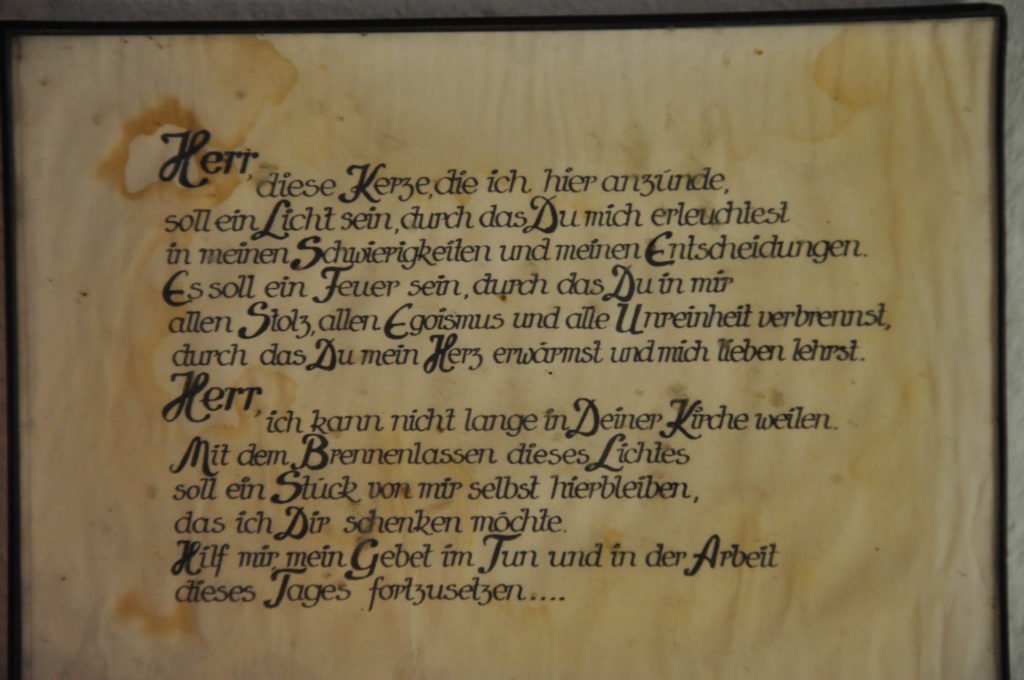 Herr,
diese Kerze, die ich hier anzünde,
soll ein Licht sein, durch das Du mich erleuchtest
in meinen Schwierigkeiten und meinen Entscheidungen.
Es soll ein Feuer sein, durch das Du in mir
allen Stolz, allen Egoismus und alle Unreinheit verbrennst,
durch das Du mein Herz erwärmst und mich lieben lehrst.
Herr,
ich kann nicht lange in Deiner Kirche weilen.
Mit dem Brennenlassen dieses Lichtes
soll ein Stück von mir selbst hierbleiben,
das ich Dir schenken möchte.
Hilf mir, mein Gebet im Tun und in der Arbeit
dieses Tages fortzusetzen....